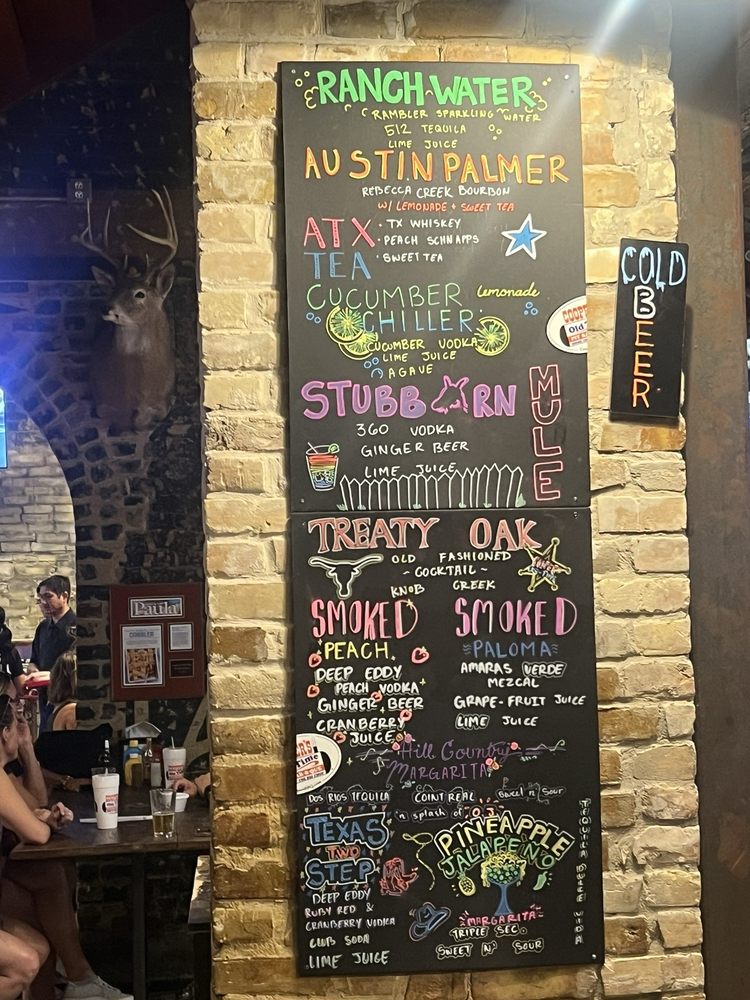 RANCH WATER
RAMBLER SPARKLING WATER
512 TEQUILA
LIME JUICE
AUSTIN PALMER
REBECCA CREEK BOURBON
W/ LEMONADE + SWEET TEA
ATX TEA
• TX WHISKEY
• PEACH SCHNAPPS
• SWEET TEA
CUCUMBER Lemonade
CHILLER
CUCUMBER VODKA
LIME JUICE
AGAVE
STUBBORN MULE
360 VODKA
GINGER BEER
LIME JUICE
COLD
BEER
TREATY OAK
OLD FASHIONED
~ COCKTAIL ~
KNOB CREEK
SMOKED
PEACH
DEEP EDDY
PEACH VODKA
GINGER BEER
CRANBERRY
JUICE
SMOKED
PALOMA
AMARAS VERDE
MEZCAL
GRAPE-FRUIT JUICE
LIME JUICE
Hill Country
MARGARITA
DOS RIOS TEQUILA COINTREAL Sweet n' Sour
'n splash of OJ
TEXAS
TWO
STEP
DEEP EDDY
RUBY RED &
CRANBERRY VODKA
CLUB SODA
LIME JUICE
PINEAPPLE
JALAPEINO
MARGARITA
TRIPLE SEC.
SWEET N' SOUR
TEQUILA DULCE VIDA
Paula
COBBLER